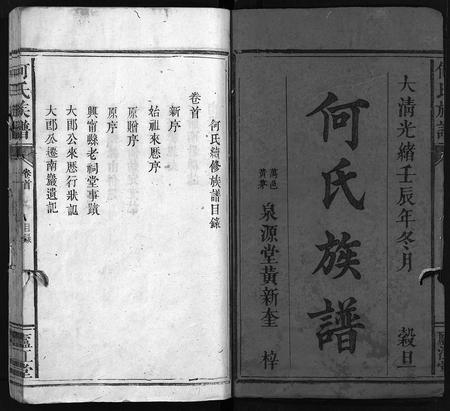 大清光緒壬辰年冬月　穀旦
何氏族譜
萬邑
黃寨
泉源堂黃新奎　梓
何氏續修族譜目錄
卷首
新序
始祖來歷序
原贈序
原序
興甯縣老祠堂事蹟
大郎公來歷行狀記
大郎公遷南嚴遺記
何氏族譜
卷首
目錄
廬江堂